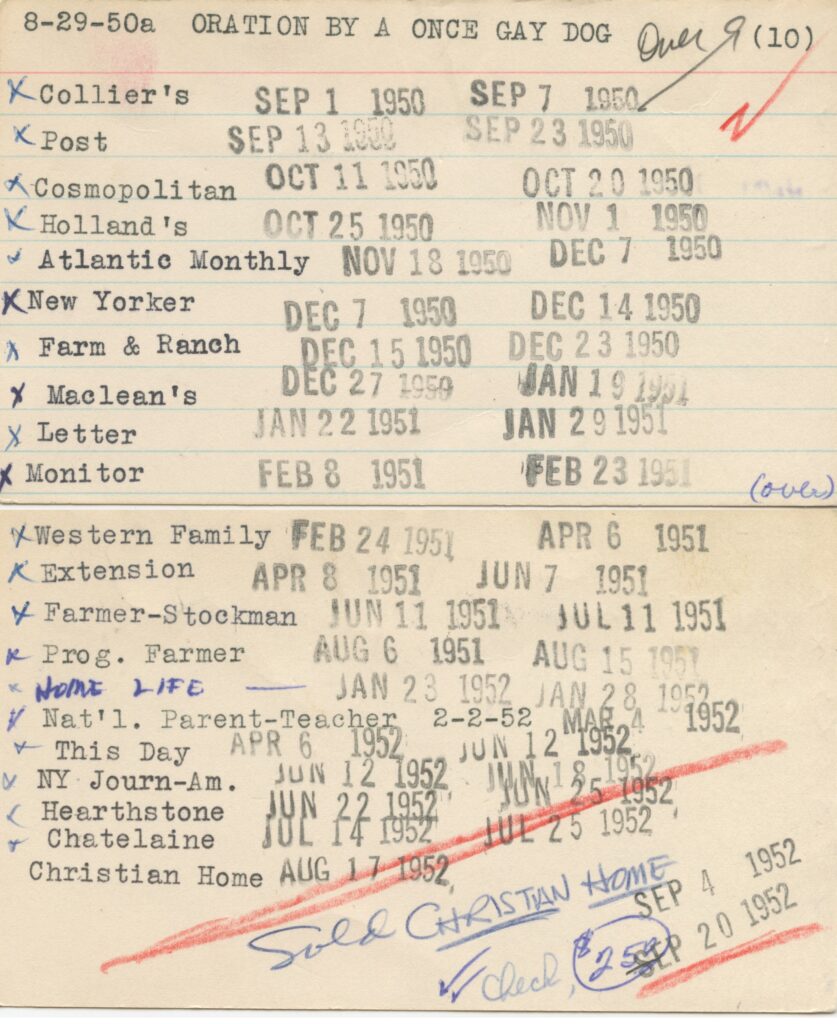 8-29-50a ORATION BY A ONCE GAY DOG Over 9 (10)
x Collier's SEP 1 1950 SEP 7 1950
x Post SEP 13 1950 SEP 23 1950
x Cosmopolitan OCT 11 1950 OCT 20 1950
x Holland's OCT 25 1950 NOV 1 1950
Atlantic Monthly NOV 18 1950 DEC 7 1950
x New Yorker DEC 7 1950 DEC 14 1950
x Farm & Ranch DEC 15 1950 DEC 23 1950
x Maclean's DEC 27 1950 JAN 19 1951
x Letter JAN 22 1951 JAN 29 1951
x Monitor FEB 8 1951 FEB 23 1951
(over)
x Western Family FEB 24 1951 APR 6 1951
x Extension APR 8 1951 JUN 7 1951
x Farmer-Stockman JUN 11 1951 JUL 11 1951
x Prog. Farmer AUG 6 1951 AUG 15 1951
x HOME LIFE — JAN 23 1952 JAN 28 1952
Nat'l. Parent-Teacher 2-2-52 MAR 4 1952
This Day APR 6 1952 JUN 12 1952
NY Journ-Am. JUN 12 1952 JUN 18 1952
Hearthstone JUN 22 1952 JUN 25 1952
Chatelaine JUL 14 1952 JUL 25 1952
Christian Home AUG 17 1952 SEP 4 1952
Sold CHRISTIAN HOME
Check, SEP 20 1952